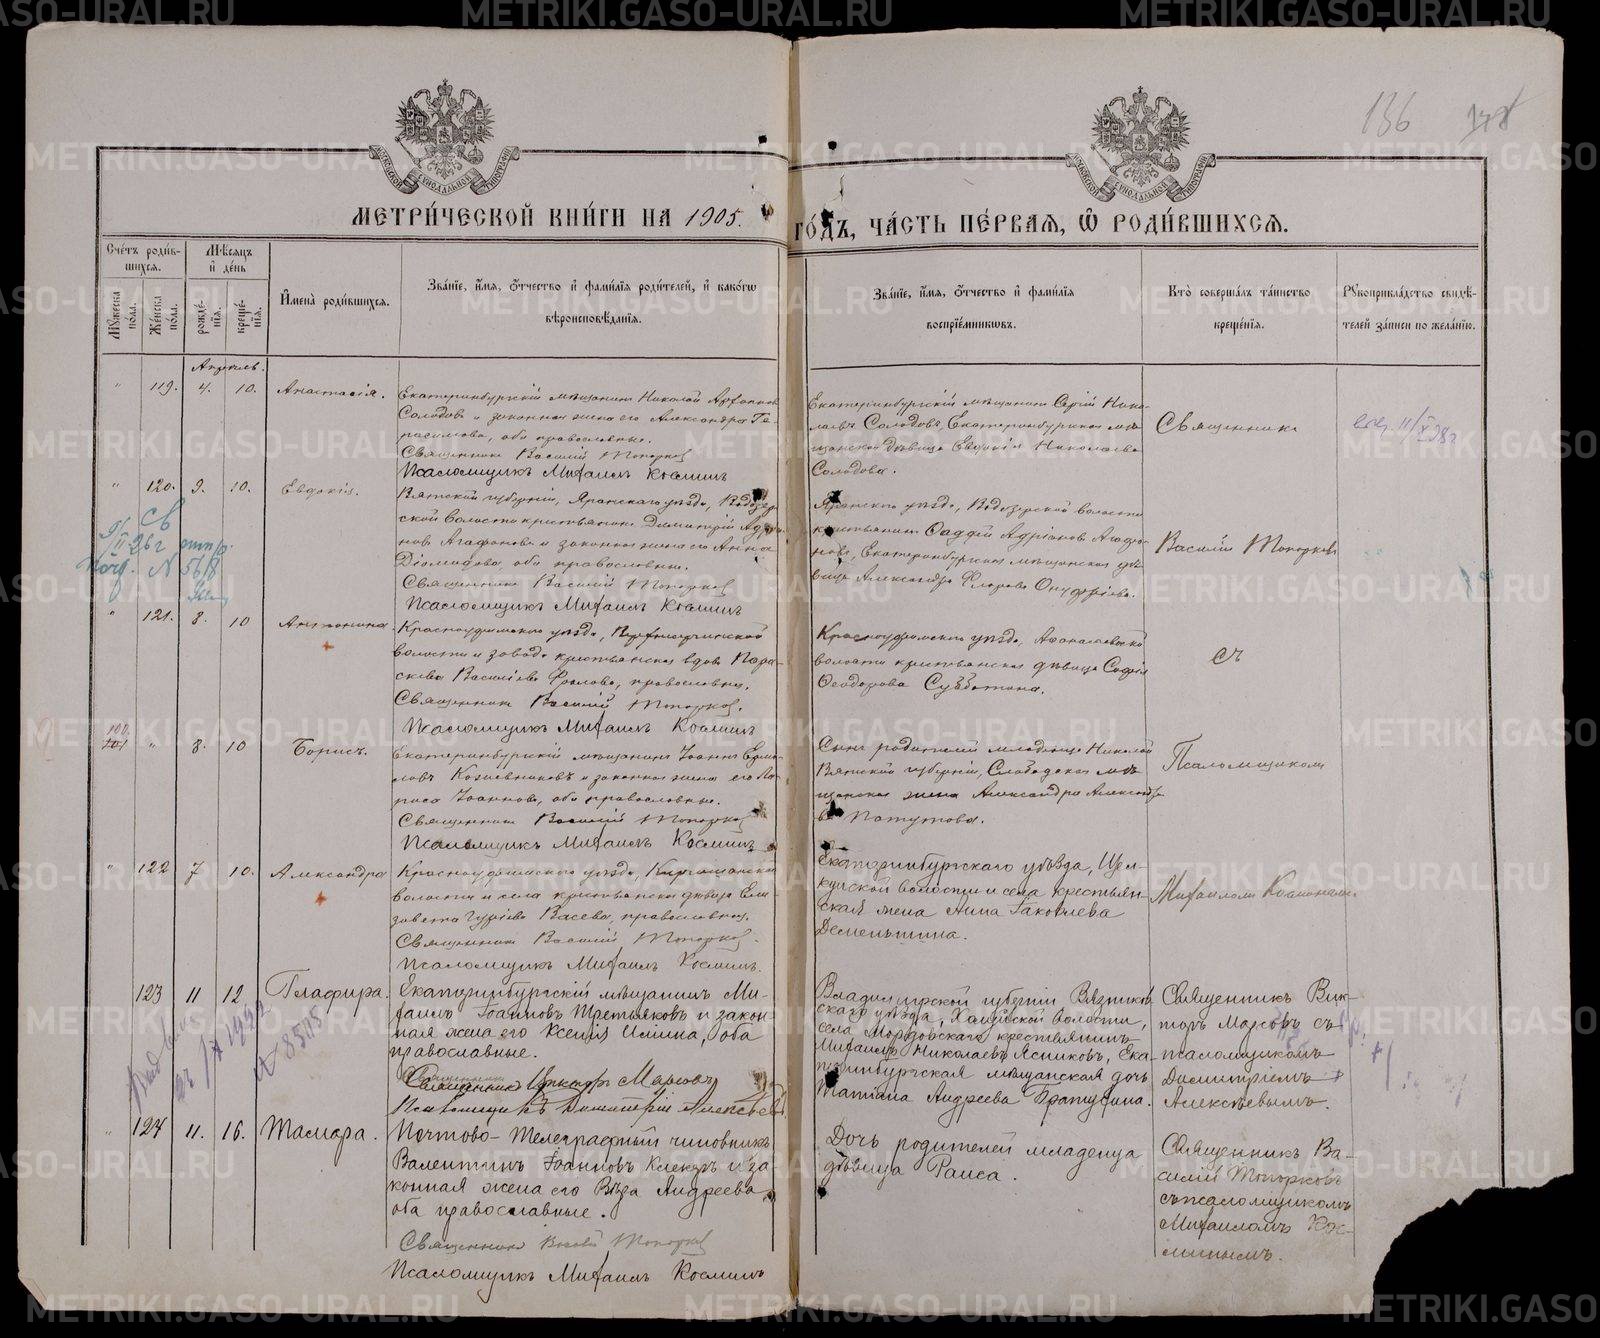 136
МЕТРИ́ЧЕСКОЙ КНИ́ГИ НА 1905. ГО́ДЪ, ЧА́СТЬ ПЕ́РВАЯ, Ѡ РОДИ́ВШИХСЯ.
Сче́тъ роди́в-
шихся.
Мꙋжеска по́ла.
Же́нска по́ла.
Мѣ́сяцъ и҆ де́нь
рожде́-нїя.
креще́-нїя.
И҆мена̀ роди́вшихся.
Зва́нїе, и҆́мя, о҆́тчество и҆ фами́лїя роди́телей, и҆ како́гѡ
вѣроисповѣ́данїя.
Зва́нїе, и҆́мя, о҆́тчество и҆ фами́лїя
воспрїе́мникѡвъ.
Кто̀ соверша́лъ та́инство
креще́нїя.
Рꙋкоприкла́дство свидѣ́-
телей за́писи по жела́нїю.
Апрѣль.
" 119. 4. 10. Анастасія.
Екатеринбургскій мѣщанинъ Николай
Солодовъ и законная жена его Александра Ге-
расимова, оба православные.
Священникъ Василій Топорковъ
Псаломщикъ Михаилъ Косминъ
Екатеринбургскій мѣщанинъ Сергій Нико-
лаевъ Солодовъ, Екатеринбургская мѣ-
щанская дѣвица Евдокія Николаева
Солодова.
Священникъ
" 120. 9. 10. Евдокія.
Вятской губерніи, Яранскаго уѣзда,
ской волости крестьянинъ Димитрій Адріа-
новъ Агафоновъ и законная жена его Анна
Діомидова, оба православные.
Священникъ Василій Топорковъ
Псаломщикъ Михаилъ Косминъ
Яранскаго уѣзда, волости
крестьянинъ Фаддей Адріановъ Агафо-
новъ, Екатеринбургская мѣщанская дѣ-
вица Александра Флорова
Василій Топорковъ
" 121. 8. 10 Антонина.
Красноуфимскаго уѣзда,
волости и завода крестьянская вдова Пара-
скева Васильева Фролова, православная.
Священникъ Василій Топорковъ.
Псаломщикъ Михаилъ Косминъ
Красноуфимскаго уѣзда,
волости крестьянская дѣвица Софія
Ѳеодорова Субботина.
съ
100. " 8. 10 Борисъ.
Екатеринбургскій мѣщанинъ Іоаннъ
Кожевниковъ и законная жена его Ла-
риса Іоаннова, оба православные.
Священникъ Василій Топорковъ
Псаломщикъ Михаилъ Косминъ
Сынъ родителей младенца Николай
Вятской губерніи, Слободская мѣ-
щанская жена Александра Александро-
ва Патутова.
Псаломщикомъ
" 122 7 10. Александра
Красноуфимскаго уѣзда, Киргишанской
волости и села крестьянская дѣвица Ели-
завета Гурьева Васева, православная.
Священникъ Василій Топорковъ.
Псаломщикъ Михаилъ Косминъ.
Екатеринбургскаго уѣзда, Щел-
кунской волости и села крестьян-
ская жена Анна Іаковлева
Дементьина.
Михаиломъ Косминымъ
123 11 12 Глафира.
Екатеринбургскій мѣщанинъ Ми-
хаилъ Іоанновъ Третьяковъ и закон-
ная жена его Ксенія Ильина, оба
православные.
Священникъ Викторъ Марсовъ
Псаломщикъ Димитрій Алексѣевъ
Владимірской губерніи Вязников-
скаго уѣзда, Холуйской волости,
села Мордовскаго крестьянинъ
Михаилъ Николаевъ Ясниковъ, Ека-
теринбургская мѣщанская дочь
Татіана Андреева Братухина.
Священникъ Вик-
торъ Марсовъ съ
псаломщикомъ
Димитріемъ
Алексѣевымъ.
" 124 11. 16. Тамара.
Почтово-Телеграфный чиновникъ
Валентинъ Іоанновъ Клеверъ и за-
конная жена его Вѣра Андреева,
оба православные.
Священникъ Василій Топорковъ
Псаломщикъ Михаилъ Косминъ
Дочь родителей младенца
дѣвица Раиса.
Священникъ Ва-
силій Топорковъ
съ псаломщикомъ
Михаиломъ Кос-
минымъ.
METRIKI.GASO-URAL.RU